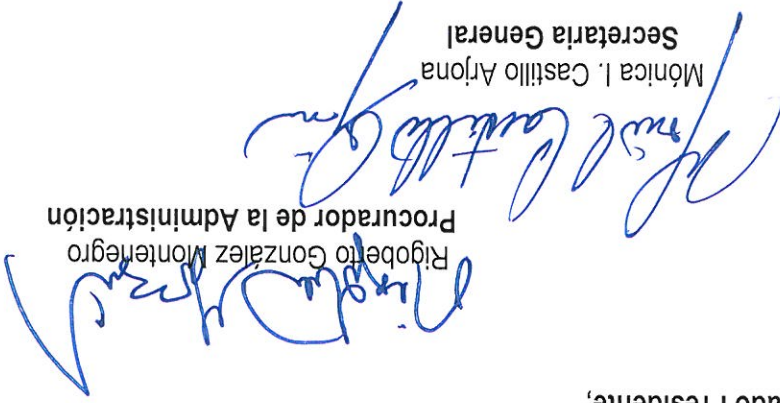 ado Presidente,
Rigoberto González Montenegro
Procurador de la Administración
Mónica I. Castillo Arjona
Secretaria General